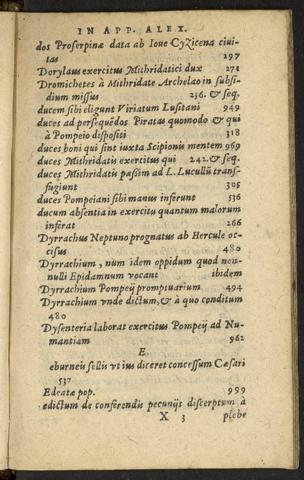 IN APP. ALEX.
dos Proserpinæ data ab Ioue Cyzicena ciui-
tas 297
Dorylaus exercitus Mithridatici dux 271
Dromichetes à Mithridate Archelao in subsi-
dium missus 236. & seq.
ducem sibi eligunt Viriatum Lusitani 949
duces ad persequẽdos Piratas quomodo & qui
à Pompeio dispositi 318
duces boni qui sint iuxta Scipionis mentem 969
duces Mithridatis exercitus qui 242. & seq.
duces Mithridatis passim ad L. Lucullũ trans-
fugiunt 305
duces Pompeiani sibi manus inferunt 536
ducum absentia in exercitu quantum malorum
inferat 266
Dyrrachus Neptuno prognatus ab Hercule oc-
cisus 480
Dyrrachium, num idem oppidum quod non-
nulli Epidamnum vocant ibidem
Dyrrachium Pompeij promptuarium 494
Dyrrachium vnde dictum, & à quo conditum
480
Dysenteria laborat exercitus Pompeij ad Nu-
mantiam 962
E.
eburneis sellis vt ius diceret concessum Cæsari
537
Edeatæ pop. 999
edictum de conferendis pecunijs discerptum à
X 3 plebe